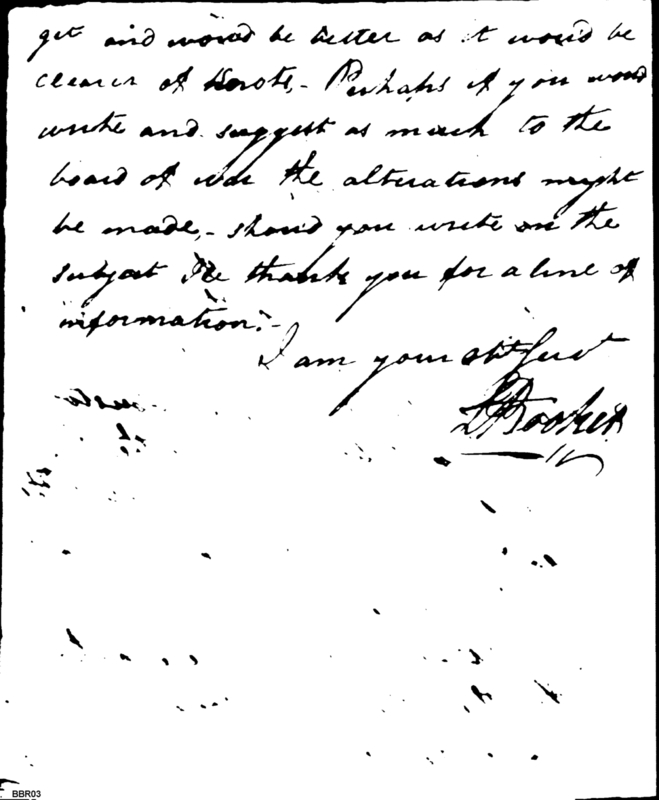 get and would be better as it would be
clearer of Knots,- Perhaps if you would
write and suggest as much to the
board of war the alterations might
be made,- should you write on the
subject I'le thank you for a line of
information.-
I am your obt Servt
BBR03